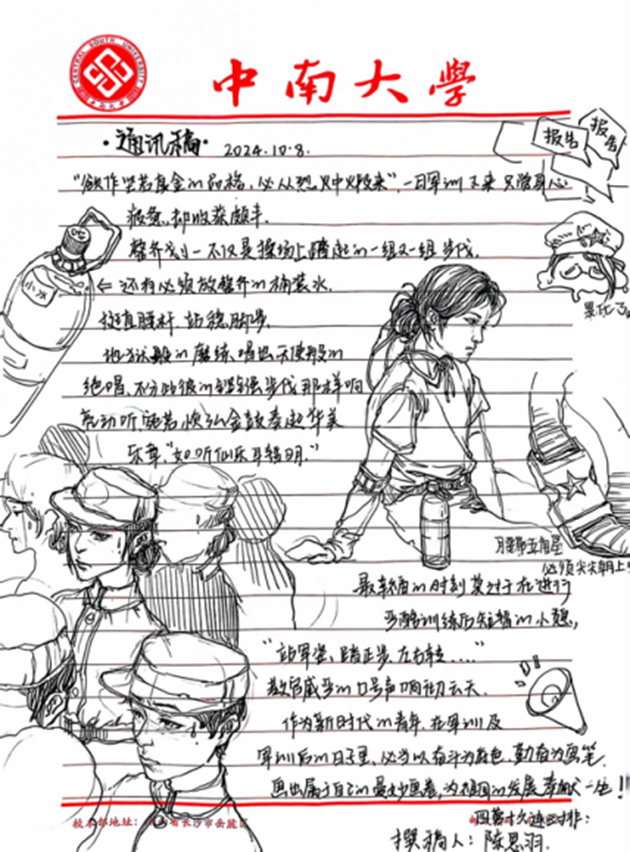 CENTRAL SOUTH UNIVERSITY
中南大學
·通讯稿· 2024.10.8.
报告
报告
"欲作坚若真金的品格,必从烈火中煅来",一日军训下来只覺身心
疲惫,却收获颇丰.
整齐划一不仅是操场上踏起的一组又一组步伐.
← 还有必须放整齐的桶装水.
小水
挺直腰杆,站稳脚步.
黑化了
地狱般的磨练,唱出天使般的
绝唱,不分彼此的铿锵步伐那样响
乐章,"如听仙乐耳暂明."
腰带五角星
必须尖尖朝上
最幸福的时刻莫过于在进行
训练后短暂的小憩,
"站军姿,踏正步,左右转...."
教官威严的口号声响彻云天.
作为新时代的青年,在军训及
军训后的日子里,必当以奋斗为底色,勤奋为画笔.
画出属于自己的曼妙画卷,为祖国的发展奉献一生!
校本部地址:湖南省长沙市岳麓区
撰稿人:陈思羽.